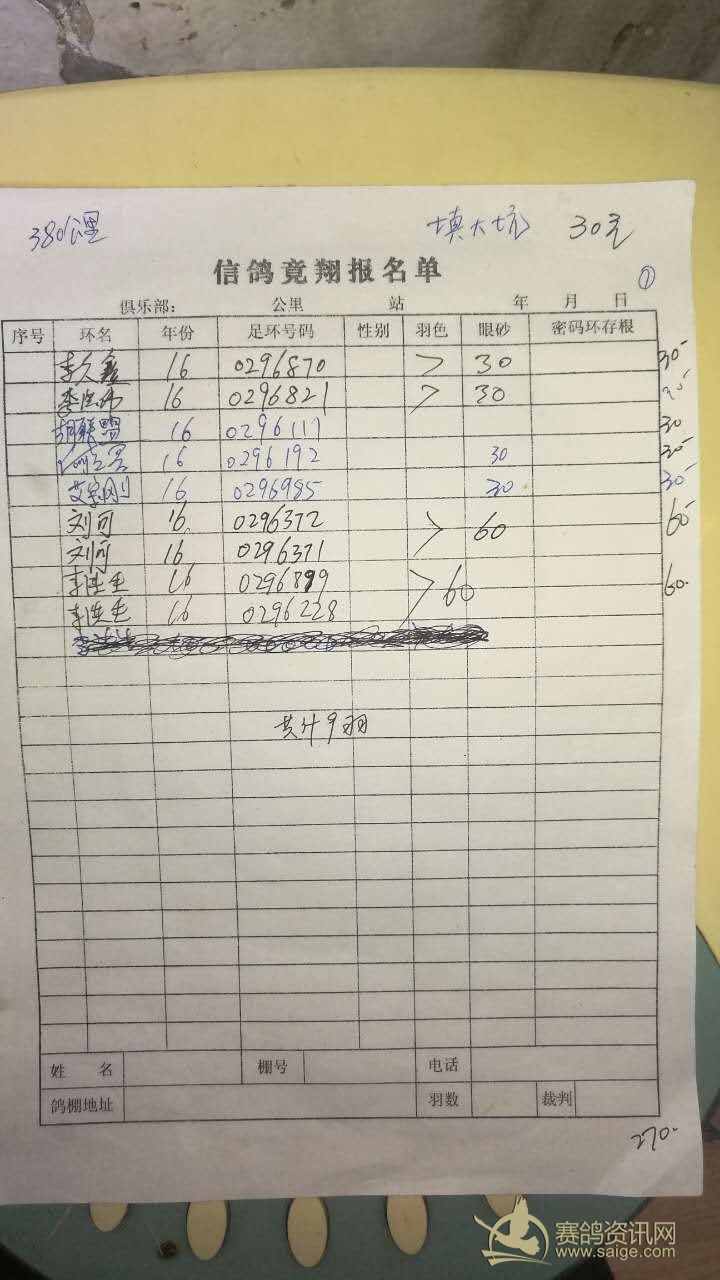 380公里 填大坑 30元
信鸽竟翔报名单 ①
俱乐部： 公里 站 年 月 日
序号 环名 年份 足环号码 性别 羽色 眼砂 密码环存根
李久鑫 16 0296870 > 30 30
李 16 0296821 > 30 30
胡联盟 16 0296117 30
16 0296192 30 30
艾刚 16 0296985 30 30
刘可 16 0296372 > 60 60
刘可 16 0296371
李连生 16 0296899 > 60 60
李连生 16 0296228
共计9羽
姓 名 棚号 电话
鸽棚地址 羽数 裁判
270
赛鸽资讯网
www.saige.com